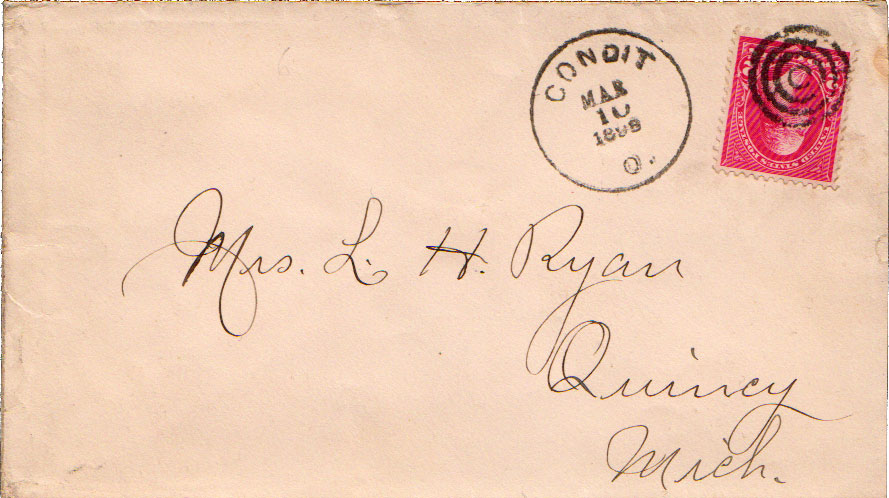 CONDIT
MAR
10
1898
O.
Mrs. L. H. Ryan
Quincy
Mich.